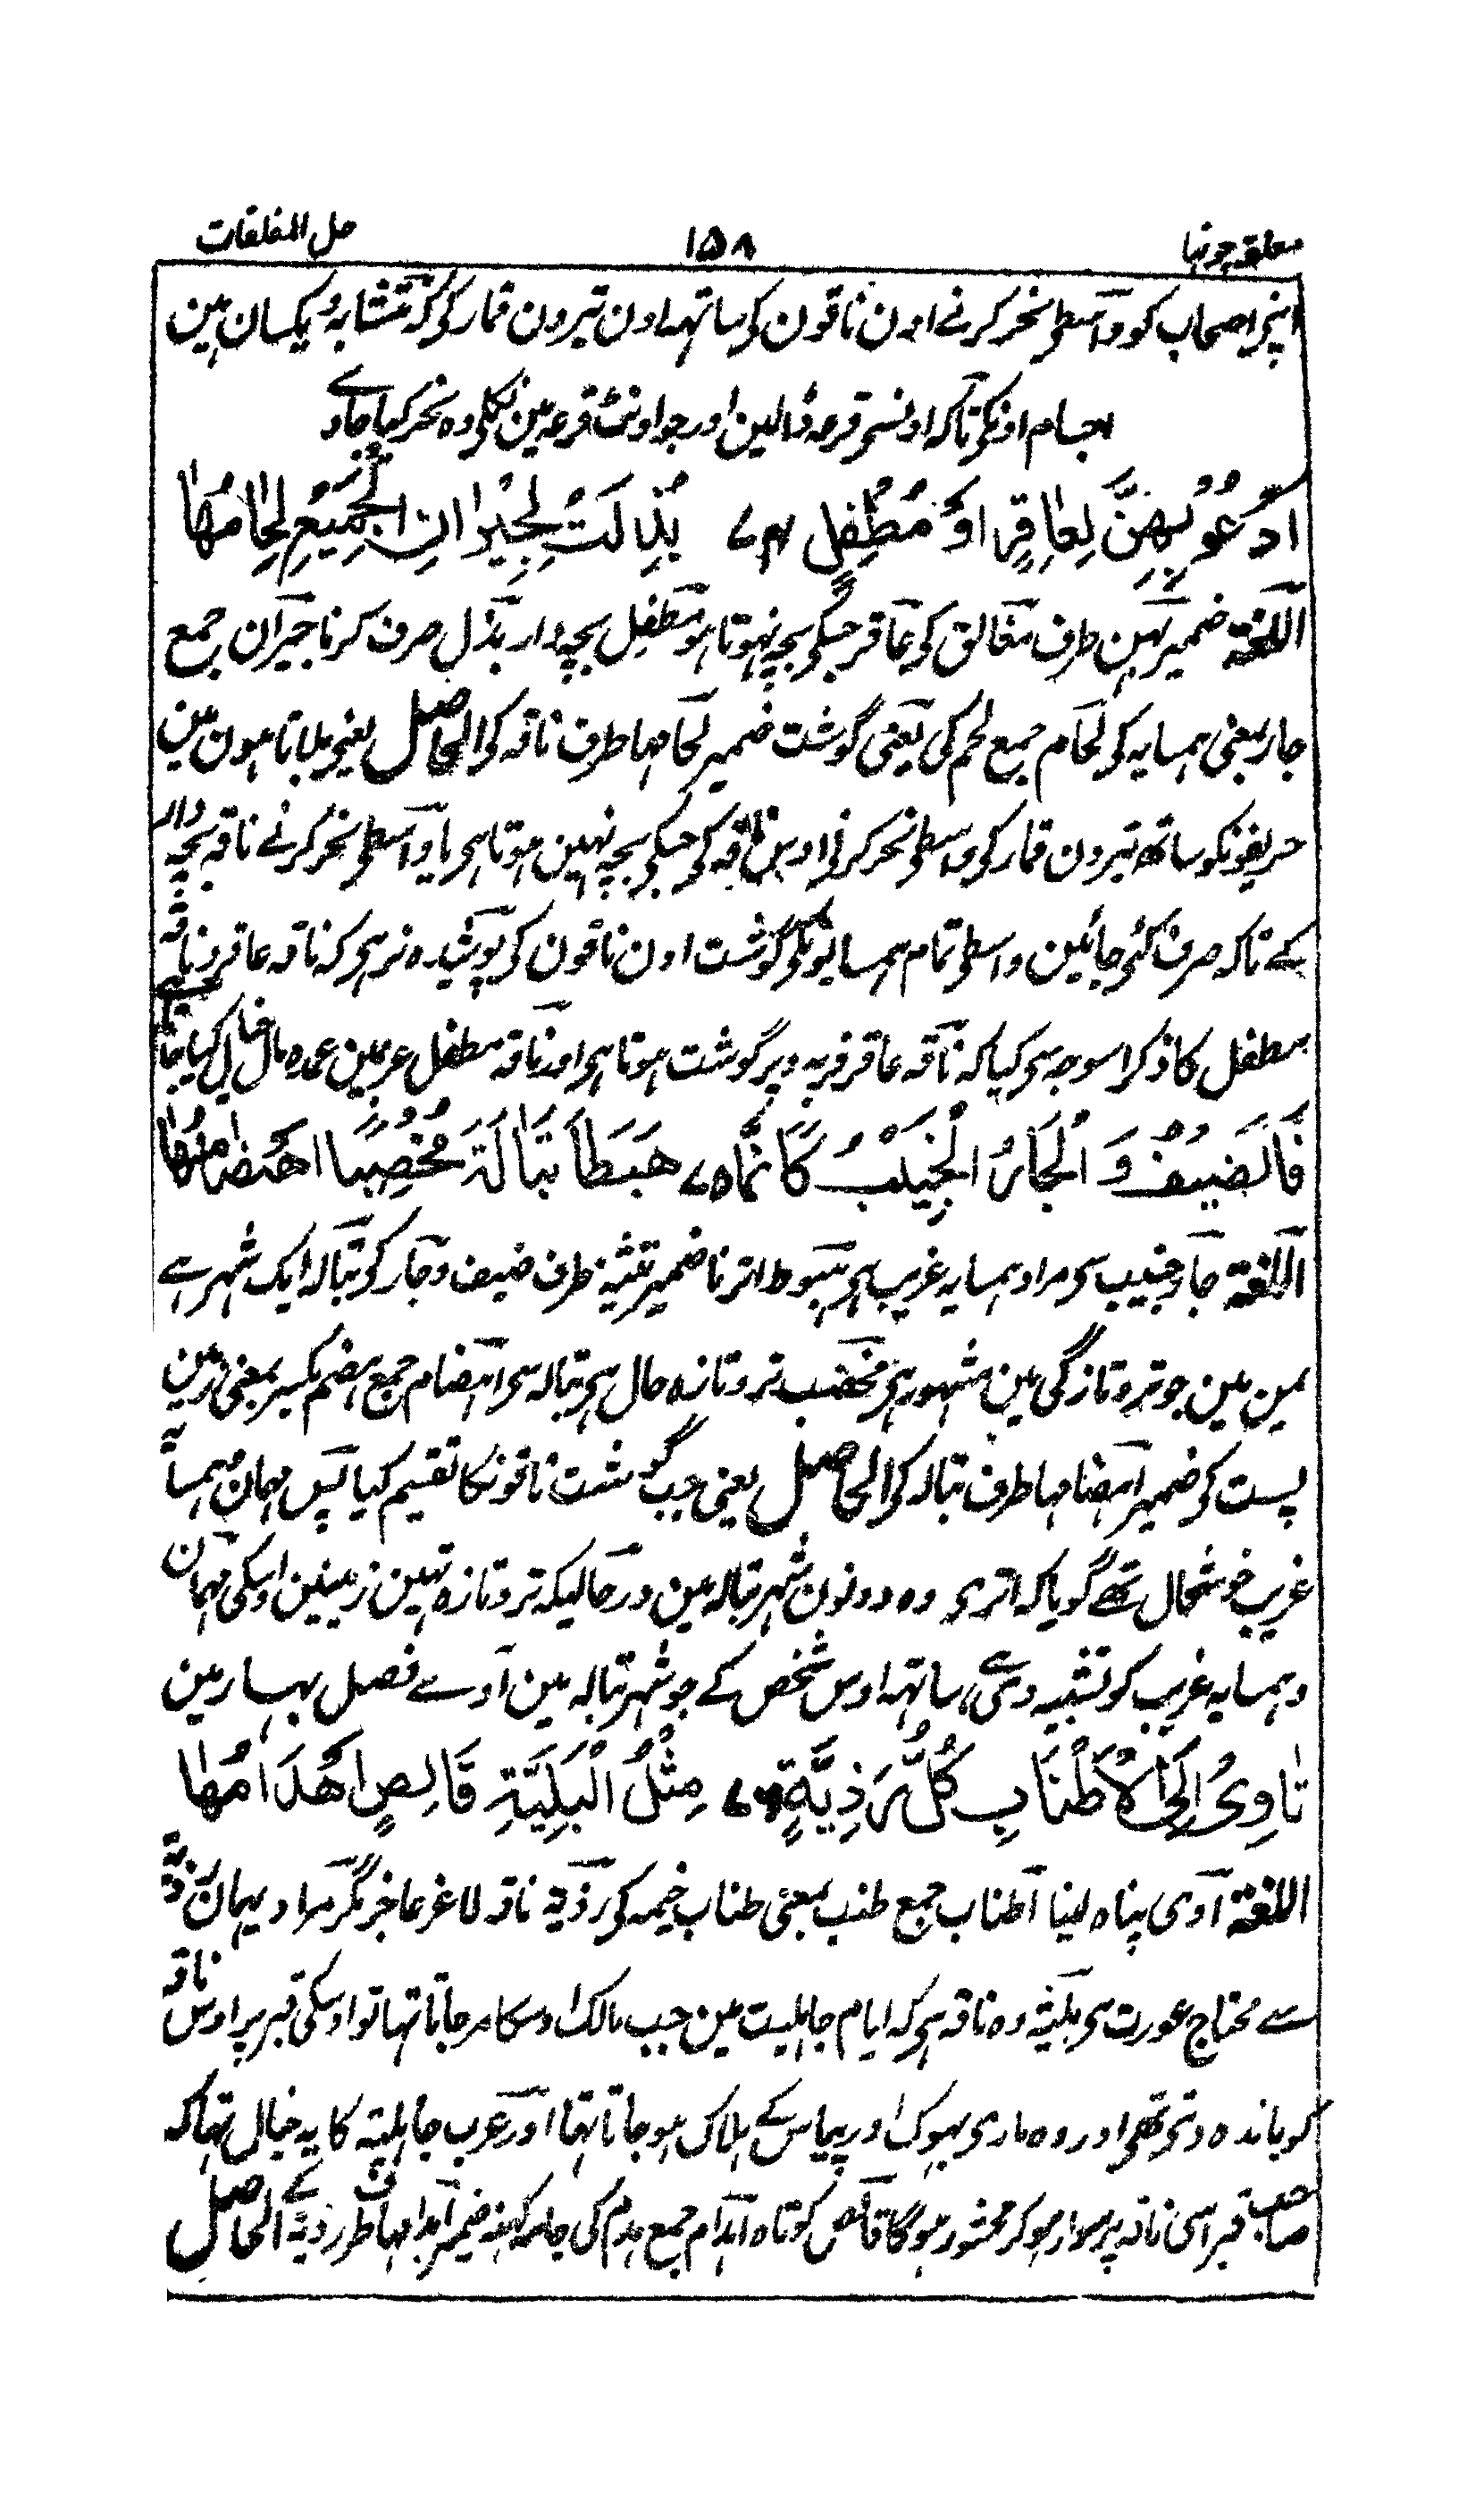 معلقہ چوتھا ۱۵۸ حل المغلقات
اپنی اصحاب کو واسطی نحر کرنے اون ناقون کی ساتھہ اون تیرون قمار کی کہ متشابہ و یکسان ہین
اجسام اونکی تاکہ اونسی قرعہ ڈالین اور جو اونٹ قرعہ مین نکلی وہ نحر کیا جاوے
اَدْعُوْ بِهِنَّ لِعَاقِرٍ اَوْ مُطْفِلٍ ۷۴ بُذِلَتْ لِجِيْرَانِ الْجَمِيْعِ لِحَامُهَا
اللغة ضمیر بہن طرف مغالق کی عاقر جسکی بچہ نہوتا ہو مطفل بچہ دار بذل صرف کرنا جیران جمع
جار بمعنی ہمسایہ کی لحام جمع لحم کی یعنی گوشت ضمیر لحامہا طرف ناقہ کی الحاصل یعنی بلاتا ہون مین
حریفونکو ساتھ تیرون قمار کی واسطی نحر کرنی اوس ناقہ کی جسکی بچہ نہین ہوتا ہی یا واسطی نحر کرنے ناقہ بچہ دار
کے تاکہ صرف کئی جائین واسطی تمام ہمسایونکی گوشت اون ناقون کی پوشیدہ نرہی کہ ناقہ عاقر و ناقہ
مطفل کا ذکر اسوجہ سی کیا کہ ناقہ عاقر فربہ و پر گوشت ہوتا ہی اور ناقہ مطفل عرب مین عمدہ مال خیال کیا جاتا ہے
فَالضَّيْفُ وَ الْجَارُ الْجَنِيْبُ كَاَنَّمَا ۷۵ هَبَطَا تَبَالَةَ مُخْصِبًا اَهْضَامُهَا
اللغة جار جنیب سی مراد ہمسایہ غریب ہی ہبوط اترنا ضمیر تثنیہ طرف ضیف و جار کی تبالہ ایک شہر ہے
یمین مین جو تر و تازگی مین مشہور ہی مخصب تر و تازہ حال ہی تبالہ سی اہضام جمع ہضم بکسر بمعنی زمین
پست کی ضمیر اہضامہا طرف تبالہ کی الحاصل یعنی جب گوشت ناقونکا تقسیم کیا پس مہمان و ہمسایہ
غریب خوشحال تھے گویا کہ اتری وہ دونون شہر تبالہ مین درحالیکہ تر و تازہ تہین زمینین اوسکی مہمان
و ہمسایہ غریب کو تشبیہ دی ساتھہ اوس شخص کے جو شہر تبالہ مین آوے فصل بہار مین
تَاوِيْ اِلَى الْاَطْنَابِ كُلُّ رَذِيَّةٍ ۷۶ مِثْلُ الْبَلِيَّةِ قَالِصٍ اَهْدَامُهَا
اللغة آوی پناہ لینا اطناب جمع طنب بمعنی طناب خیمہ کی رذیة ناقہ لاغر عاجز مگر مراد یہان رذیہ
سے محتاج عورت ہی بلیّہ وہ ناقہ ہی کہ ایام جاہلیت مین جب مالک اوسکا مر جاتا تہا تو اوسکی قبر پر اوس ناقہ
کو باندہ دیتی تھی اور وہ ماری بہوک اور پیاس کے ہلاک ہو جاتا تہا اور عرب جاہلیہ کا یہ خیال تہا کہ
صاحب قبر اسی ناقہ پر سوار ہو کر محشور ہوگا قالص کوتاہ اہدام جمع ہدم کی جامہ کہنہ ضمیر اہدامہا طرف رذیہ کے الحاصل